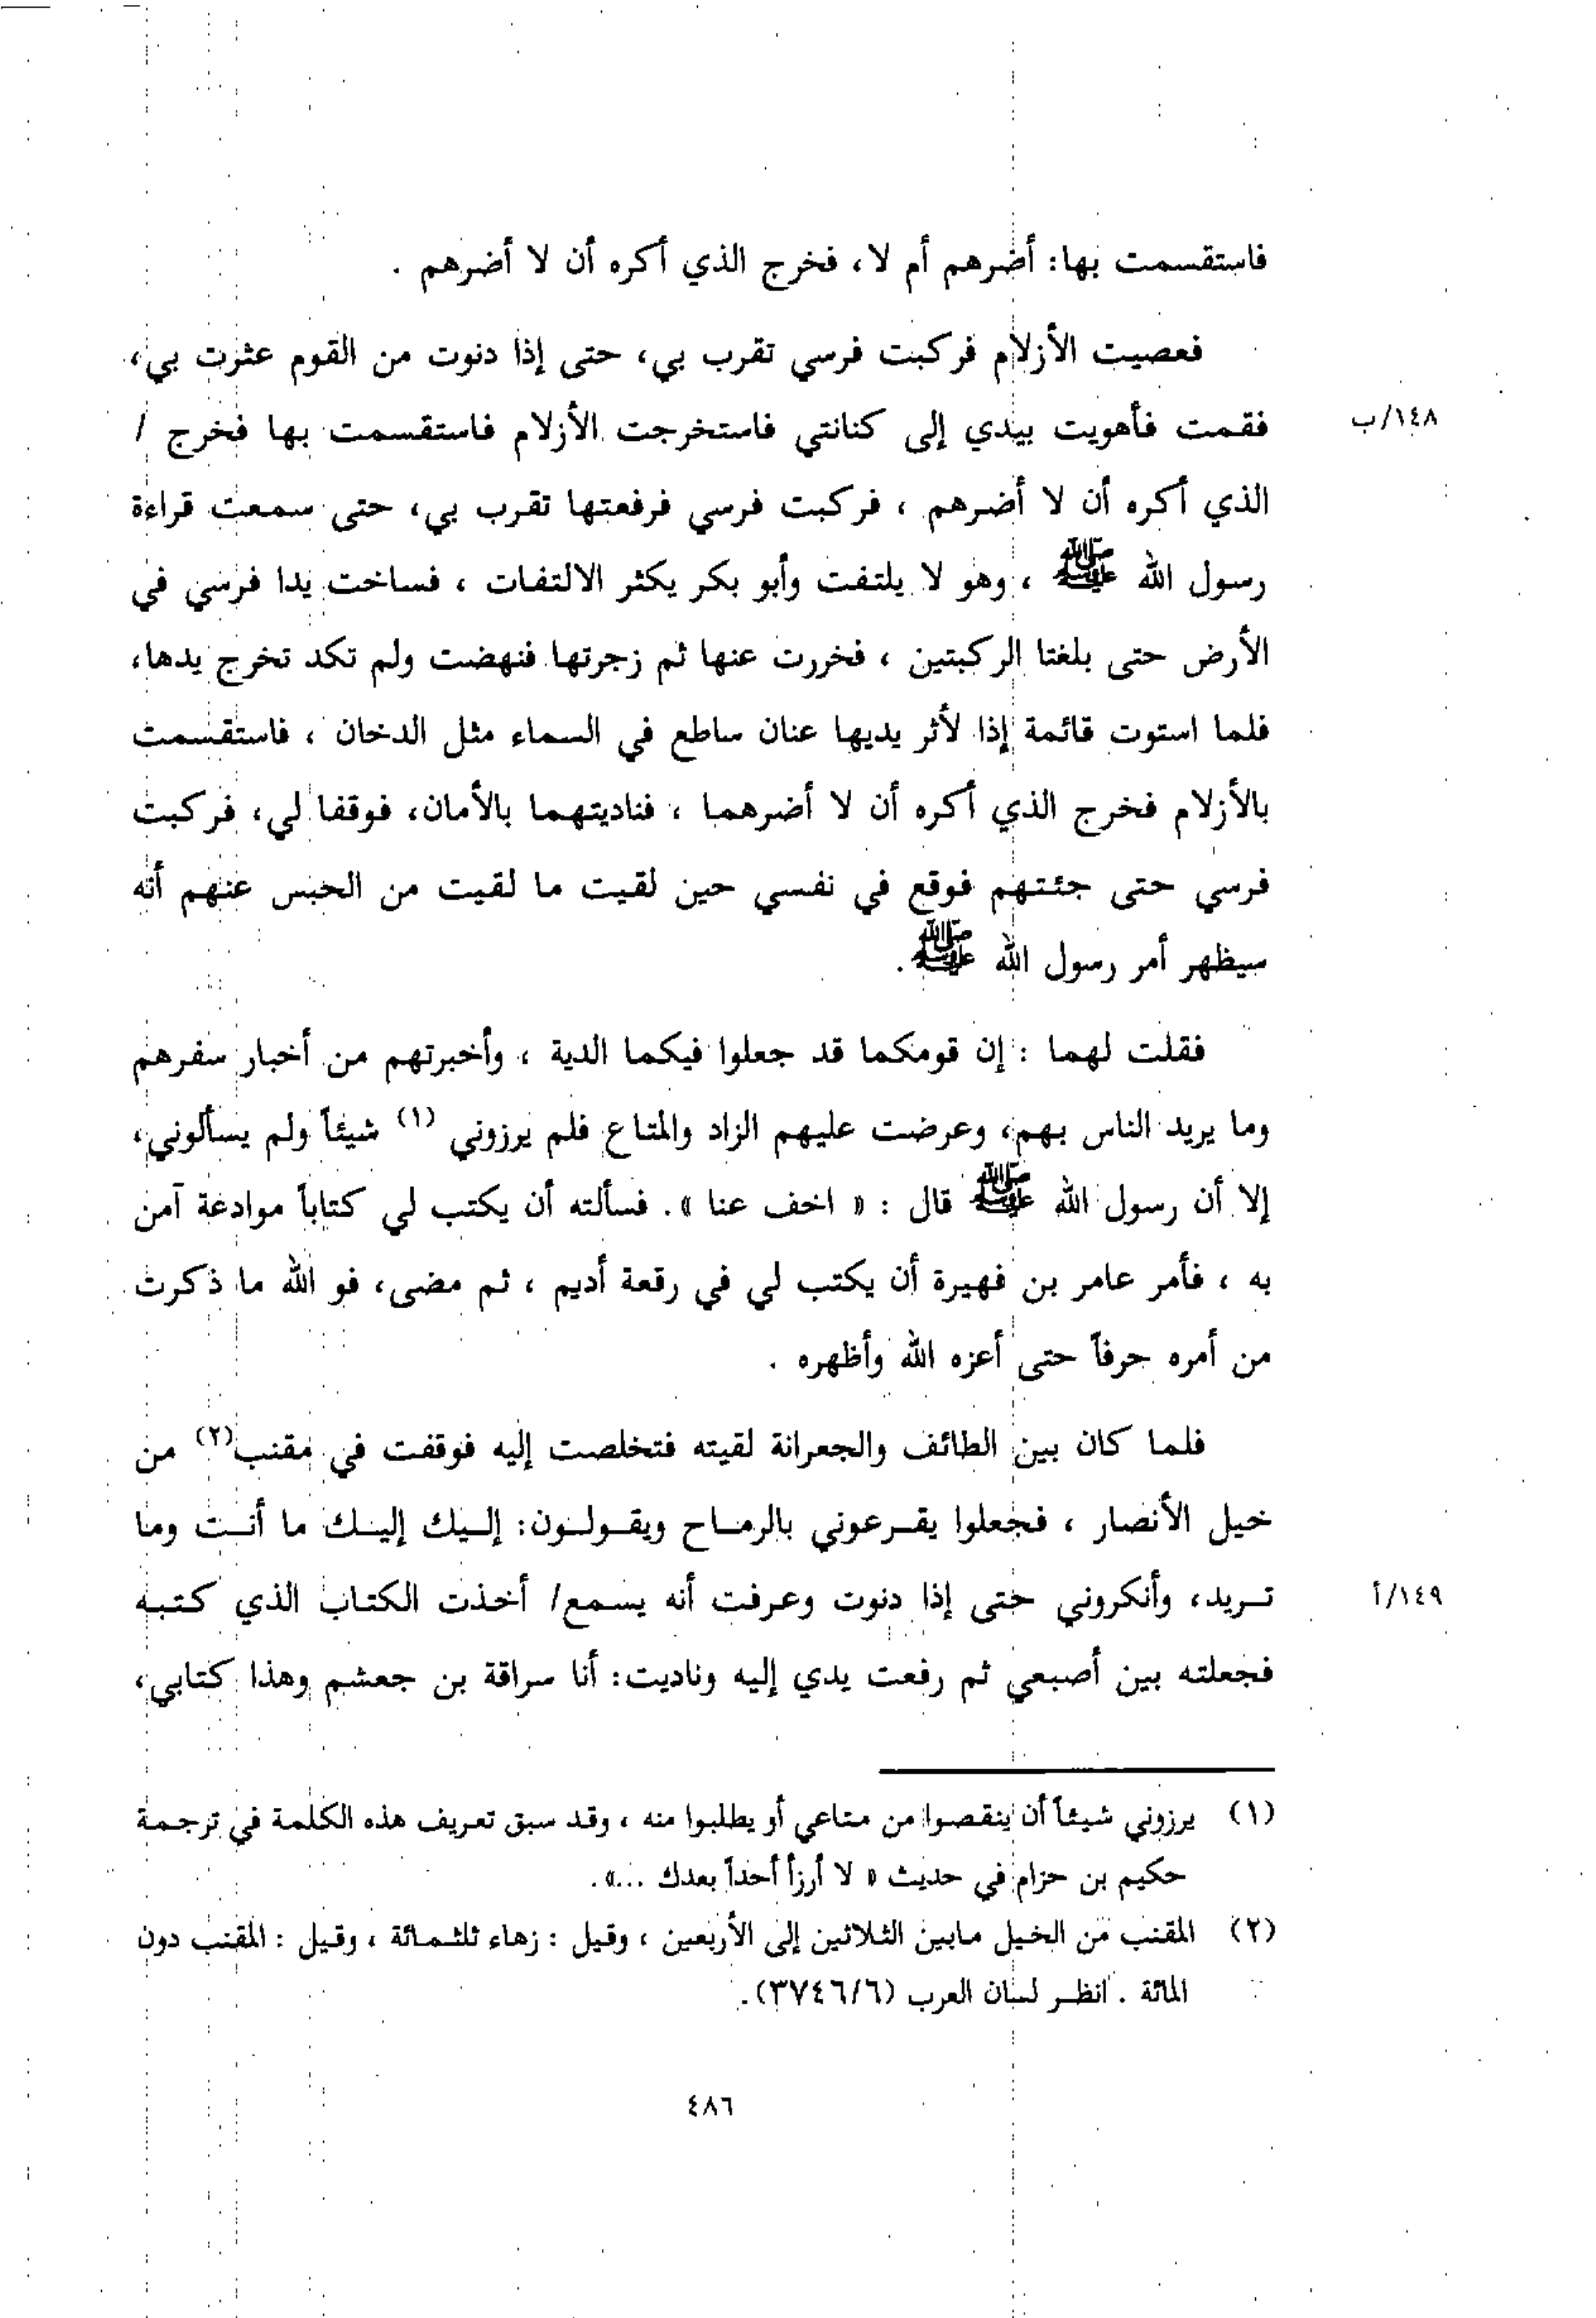 فاستقسمت بها: أضرهم أم لا، فخرج الذي أكره أن لا أضرهم .
فعصيت الأزلام فركبت فرسي تقرب بي، حتى إذا دنوت من القوم عثرت بي،
فقمت فأهويت بيدي إلى كنانتي فاستخرجت الأزلام فاستقسمت بها فخرج /
١٤٨/ب
الذي أكره أن لا أضرهم ، فركبت فرسي فرفعتها تقرب بي، حتى سمعت قراءة
رسول الله ﷺ ، وهو لا يلتفت وأبو بكر يكثر الالتفات ، فساخت يدا فرسي في
الأرض حتى بلغتا الركبتين ، فخررت عنها ثم زجرتها فنهضت ولم تكد تخرج يدها،
فلما استوت قائمة إذا لأثر يديها عنان ساطع في السماء مثل الدخان ، فاستقسمت
بالأزلام فخرج الذي أكره أن لا أضرهما ، فناديتهما بالأمان، فوقفا لي، فركبت
فرسي حتى جئتهم فوقع في نفسي حين لقيت ما لقيت من الحبس عنهم أنه
سيظهر أمر رسول الله ﷺ.
فقلت لهما : إن قومكما قد جعلوا فيكما الدية ، وأخبرتهم من أخبار سفرهم
وما يريد الناس بهم، وعرضت عليهم الزاد والمتاع فلم يرزوني (١) شيئاً ولم يسألوني،
إلا أن رسول الله ﷺ قال : « اخف عنا ». فسألته أن يكتب لي كتاباً موادعة آمن
به ، فأمر عامر بن فهيرة أن يكتب لي في رقعة أديم ، ثم مضى، فو الله ما ذكرت
من أمره حرفاً حتى أعزه الله وأظهره .
فلما كان بين الطائف والجعرانة لقيته فتخلصت إليه فوقفت في مقنب(٢) من
خيل الأنصار ، فجعلوا يقرعوني بالرماح ويقولون: إليك إليك ما أنت وما
تريد، وأنكروني حتى إذا دنوت وعرفت أنه يسمع/ أخذت الكتاب الذي كتبه
١٤٩/أ
فجعلته بين أصبعي ثم رفعت يدي إليه وناديت: أنا سراقة بن جعشم وهذا كتابي،
(١) يرزوني شيئاً أن ينقصوا من متاعي أو يطلبوا منه ، وقد سبق تعريف هذه الكلمة في ترجمة
حكيم بن حزام في حديث « لا أرزأ أحداً بعدك ...».
(٢) المقنب من الخيل مابين الثلاثين إلى الأربعين ، وقيل : زهاء ثلثمائة ، وقيل : المقنب دون
المائة . انظر لسان العرب (٣٧٤٦/٦).
٤٨٦